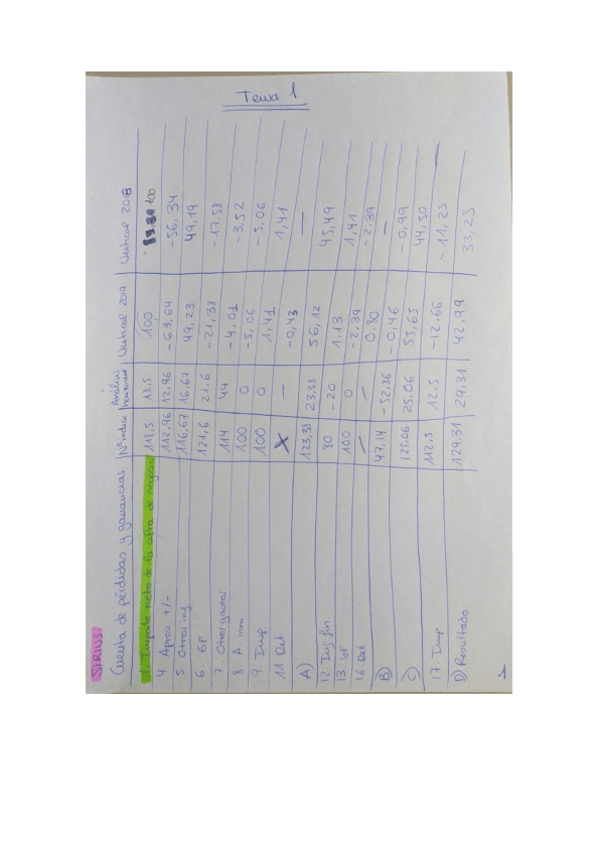 Tema 1
SIRIUS
Cuenta de pérdidas y ganancias | Nº índice | Análisis horizontal | Vertical 2019 | Vertical 2018
1. Importe neto de la cifra de negocio | 118,5 | 18,5 | 100 | 100
4 Aprov +/- | 112,96 | 12,96 | -63,64 | -56,34
5 Otros ing | 116,67 | 16,67 | 49,23 | 49,19
6 GP | 121,6 | 21,6 | -21,38 | -17,58
7. Otros gastos | 114 | 44 | -4,01 | -3,52
8 A inm | 100 | 0 | -5,06 | -5,06
9 Imp | 100 | 0 | 1,41 | 1,41
11 Det | X | — | -0,43 | —
A) | 123,33 | 23,33 | 56,12 | 45,49
12 Ing fin | 80 | -20 | 1,13 | 1,41
13 GF | 100 | 0 | -2,39 | -2,39
16 Det | — | — | 0,80 | —
B) | 47,14 | -52,86 | -0,46 | -0,99
C) | 125,06 | 25,06 | 55,65 | 44,50
17 Imp | 112,5 | 12,5 | -12,66 | -11,25
D) Resultado | 129,31 | 29,31 | 42,99 | 33,25